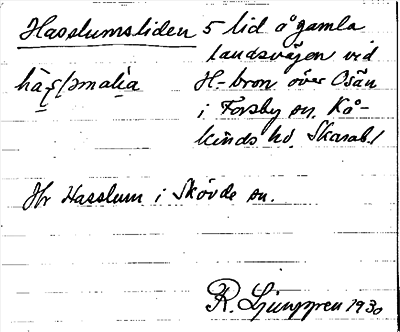 Hasslumsliden 5 lid å gamla
landsvägen vid
H-bron över Ösan
i Forsby sn. Kå-
kinds hd. Skarab. l
Hr Hasslum i Skövde sn.
R. Ljunggren 1930